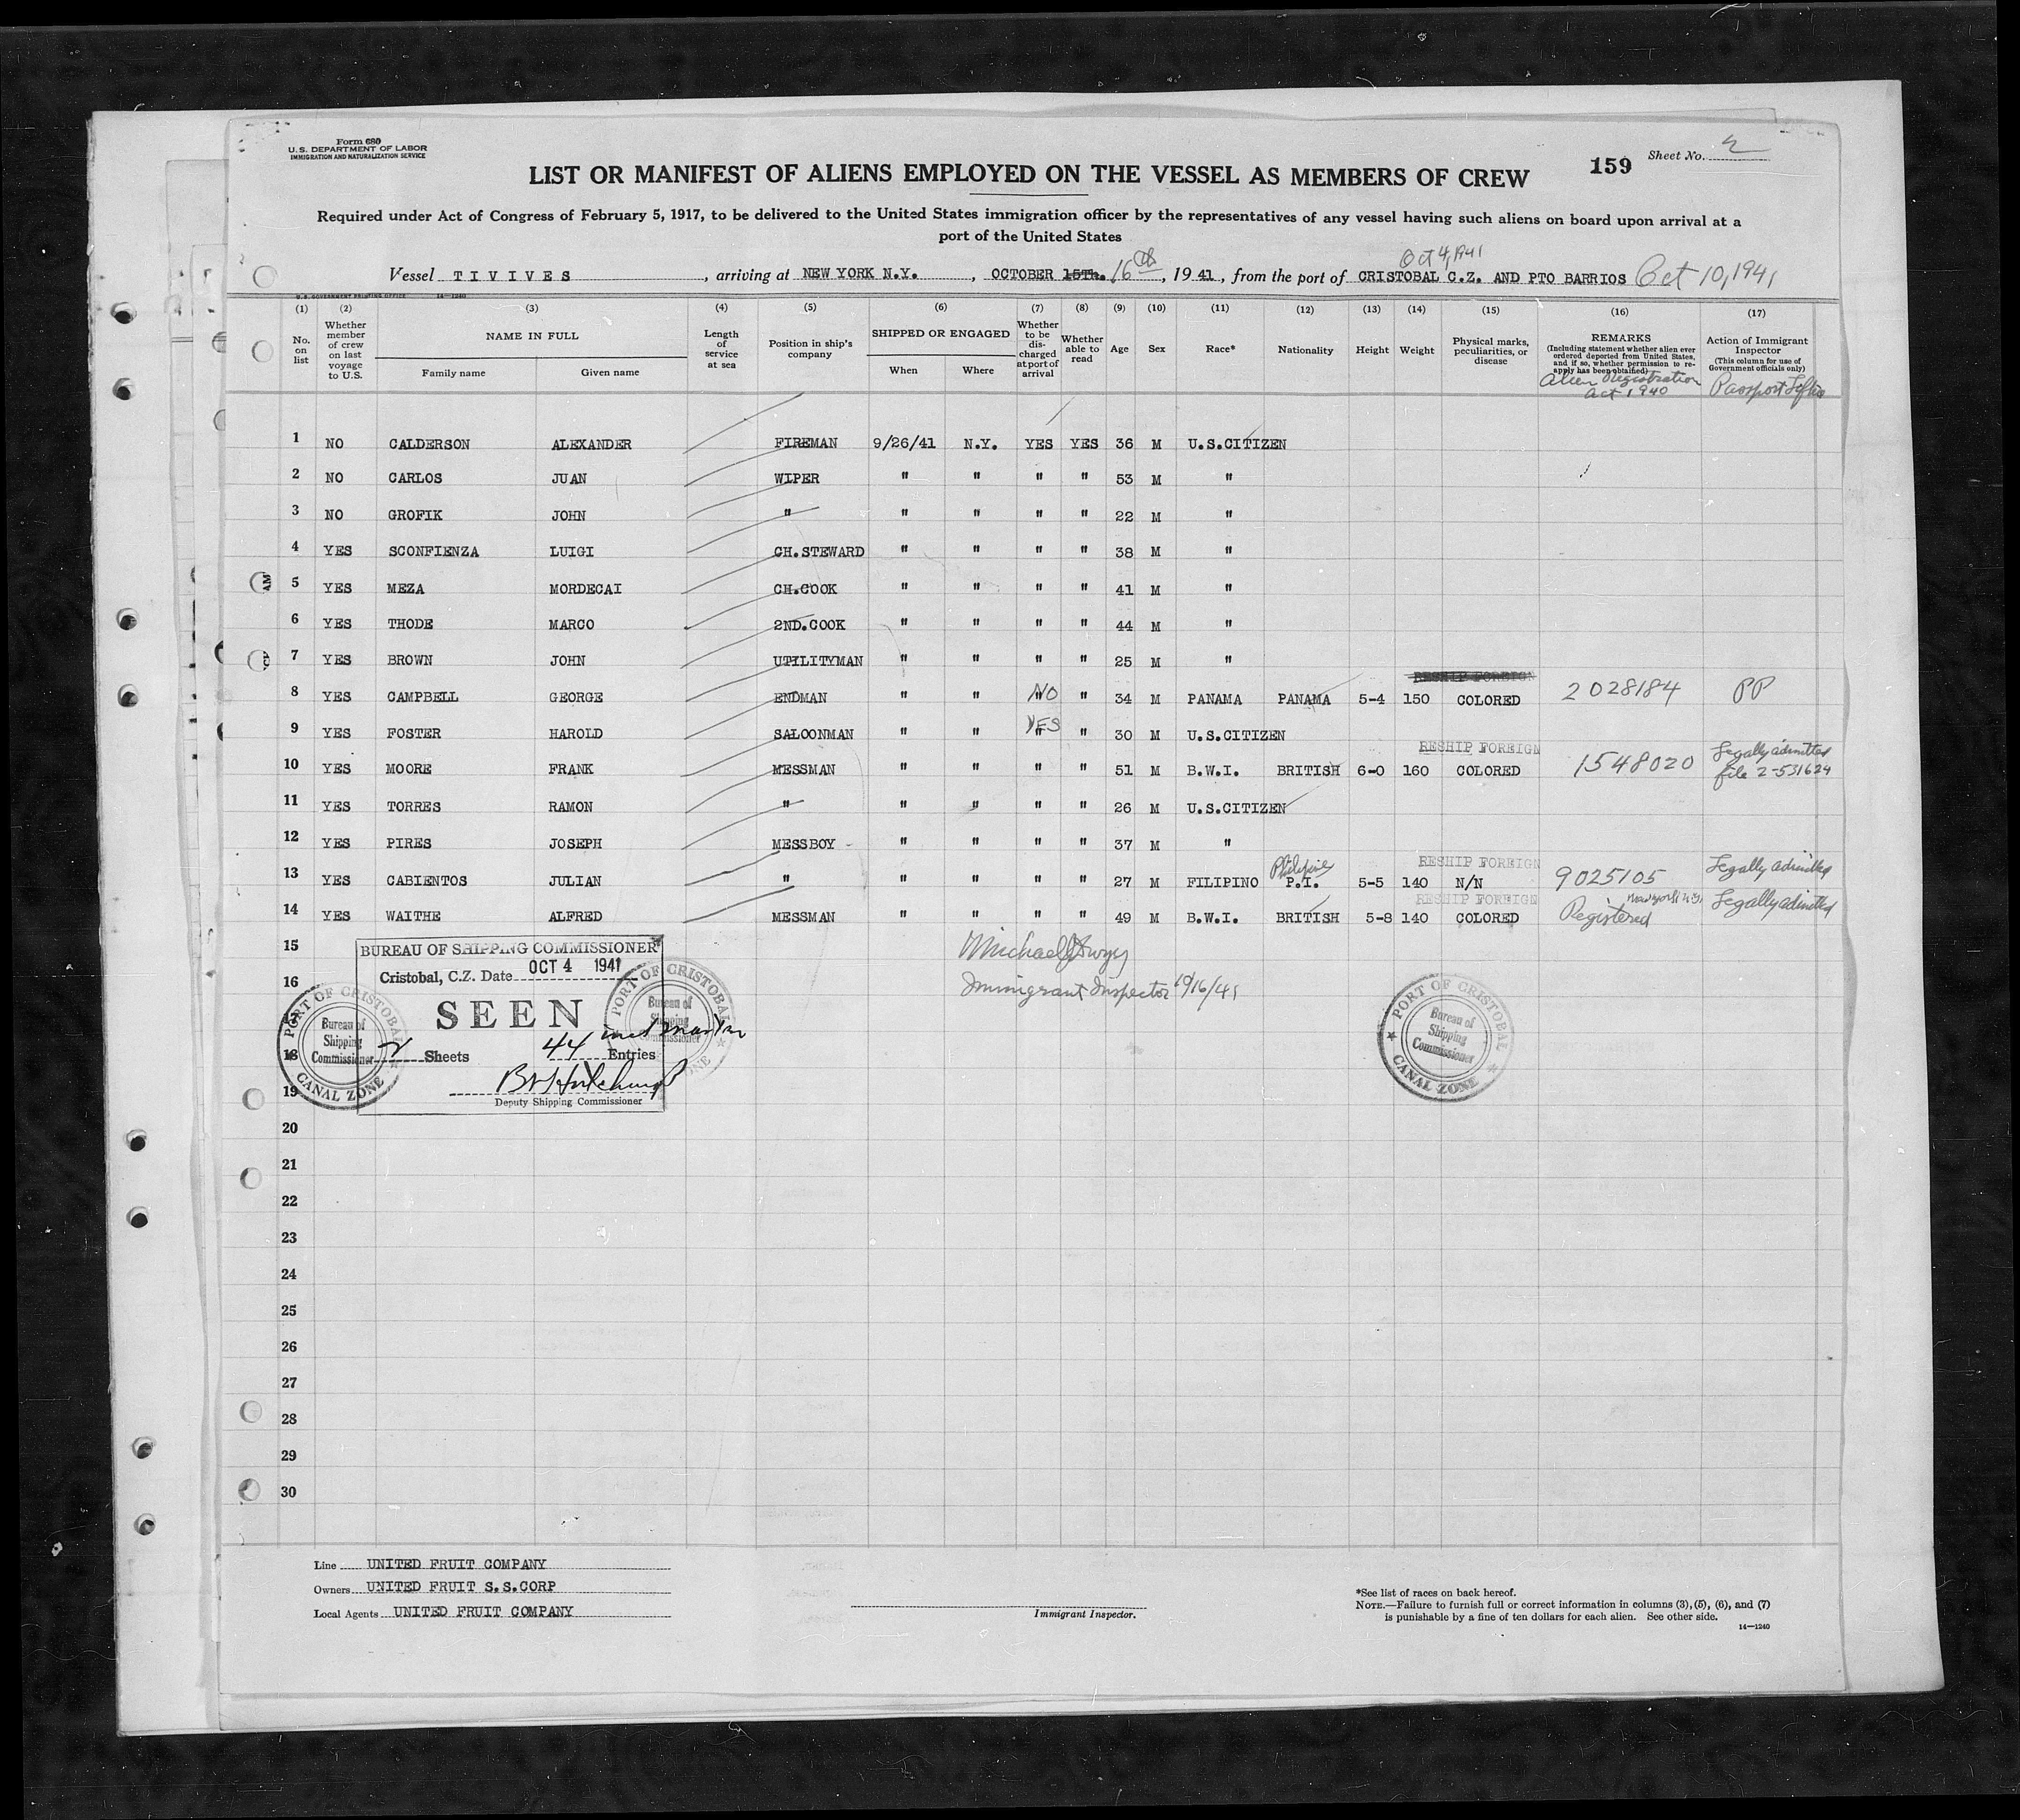 Form 680
U. S. DEPARTMENT OF LABOR
IMMIGRATION AND NATURALIZATION SERVICE
159 Sheet No. 2
LIST OR MANIFEST OF ALIENS EMPLOYED ON THE VESSEL AS MEMBERS OF CREW
Required under Act of Congress of February 5, 1917, to be delivered to the United States immigration officer by the representatives of any vessel having such aliens on board upon arrival at a
port of the United States
Oct 4, 1941
Vessel TIVIVES, arriving at NEW YORK N.Y., OCTOBER 15Th. 16th, 19 41, from the port of CRISTOBAL C.Z. AND PTO BARRIOS Oct 10, 1941
U. S. GOVERNMENT PRINTING OFFICE 14—1240
(1) (2) (3) (4) (5) (6) (7) (8) (9) (10) (11) (12) (13) (14) (15) (16) (17)
No. on list
Whether member of crew on last voyage to U.S.
NAME IN FULL
Family name Given name
Length of service at sea
Position in ship's company
SHIPPED OR ENGAGED
When Where
Whether to be discharged at port of arrival
Whether able to read
Age
Sex
Race*
Nationality
Height
Weight
Physical marks, peculiarities, or disease
REMARKS
(Including statement whether alien ever ordered deported from United States, and if so, whether permission to reapply has been obtained)
Alien Registration
Act 1940
Action of Immigrant Inspector
(This column for use of Government officials only)
Passport
1 NO CALDERSON ALEXANDER FIREMAN 9/26/41 N.Y. YES YES 36 M U.S.CITIZEN
2 NO CARLOS JUAN WIPER " " " " 53 M "
3 NO GROFIK JOHN " " " " " 22 M "
4 YES SCONFIENZA LUIGI CH.STEWARD " " " " 38 M "
5 YES MEZA MORDECAI CH.COOK " " " " 41 M "
6 YES THODE MARCO 2ND.COOK " " " " 44 M "
7 YES BROWN JOHN UTILITYMAN " " " " 25 M "
RESHIP FOREIGN
8 YES CAMPBELL GEORGE ENDMAN " " NO " 34 M PANAMA PANAMA 5-4 150 COLORED 2028184 PP
9 YES FOSTER HAROLD SALOONMAN " " YES " 30 M U.S.CITIZEN
RESHIP FOREIGN
10 YES MOORE FRANK MESSMAN " " " " 51 M B.W.I. BRITISH 6-0 160 COLORED 1548020 Legally admitted file 2-531624
11 YES TORRES RAMON " " " " " 26 M U.S.CITIZEN
12 YES PIRES JOSEPH MESSBOY " " " " 37 M "
RESHIP FOREIGN
13 YES CABIENTOS JULIAN " " " " " 27 M FILIPINO Philipine P.I. 5-5 140 N/N 9025105 Legally admitted
RESHIP FOREIGN
14 YES WAITHE ALFRED MESSMAN " " " " 49 M B.W.I. BRITISH 5-8 140 COLORED Registered New York N.Y. Legally admitted
15
16
17
18
19
20
21
22
23
24
25
26
27
28
29
30
BUREAU OF SHIPPING COMMISSIONER
Cristobal, C.Z. Date OCT 4 1941
SEEN
2 Sheets 44 Entries
Deputy Shipping Commissioner
PORT OF CRISTOBAL
Bureau of
Shipping
Commissioner
CANAL ZONE
PORT OF CRISTOBAL
Bureau of
Shipping
Commissioner
Michael
Immigrant Inspector 10/16/41
PORT OF CRISTOBAL
Bureau of
Shipping
Commissioner
CANAL ZONE
Line UNITED FRUIT COMPANY
Owners UNITED FRUIT S.S.CORP
Local Agents UNITED FRUIT COMPANY
Immigrant Inspector.
*See list of races on back hereof.
NOTE.—Failure to furnish full or correct information in columns (3), (5), (6), and (7)
is punishable by a fine of ten dollars for each alien. See other side.
14—1240